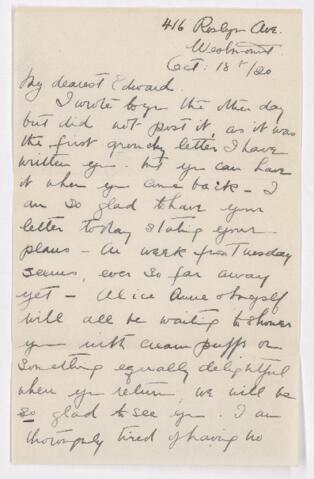 416 Roslyn Ave.
Westmount
Oct: 18th/20
My dearest Edward.
I wrote to you the other day
but did not post it, as it was
the first grouchy letter I have
written you. but you can have
it when you come back – I
am so glad to have your
letter today stating your
plans – A week from Tuesday
seems, ever so far away
yet – Alice Anne & myself
will all be waiting to shower
you with cream puffs or
something equally delightful
when you return, we will be
so glad to see you. I am
thoroughly tired of having no